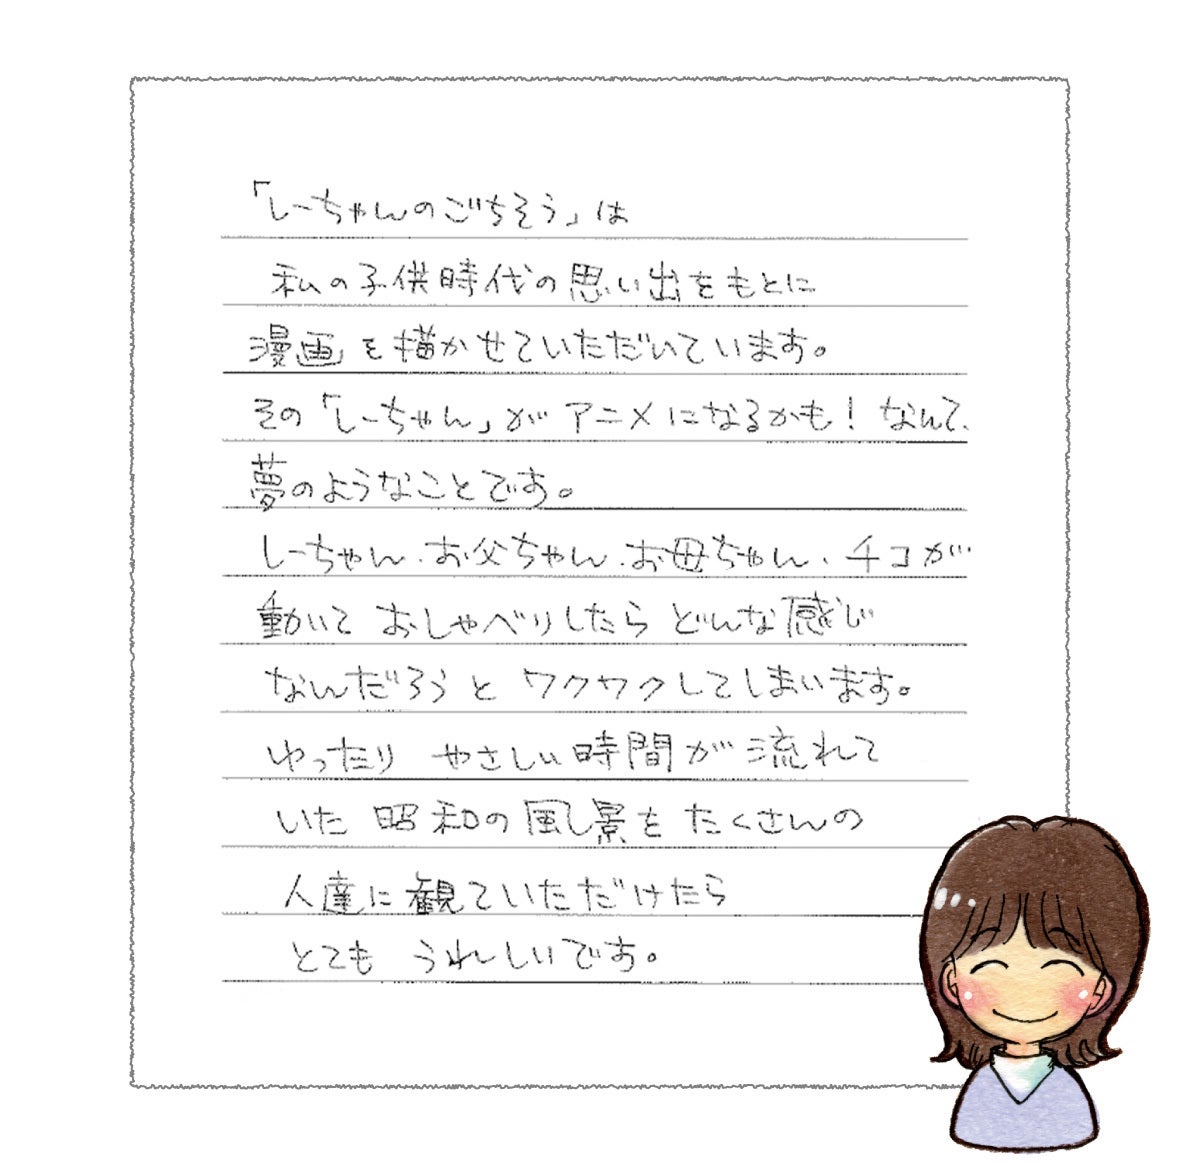 「しーちゃんのごちそう」は
私の子供時代の思い出をもとに
漫画を描かせていただいています。
その「しーちゃん」がアニメになるかも!なんて、
夢のようなことです。
しーちゃん、お父ちゃん、お母ちゃん、チコが
動いて おしゃべりしたら どんな感じ
なんだろう と ワクワクしてしまいます。
ゆったり やさしい時間が流れて
いた 昭和の風景を たくさんの
人達に観ていただけたら
とても うれしいです。